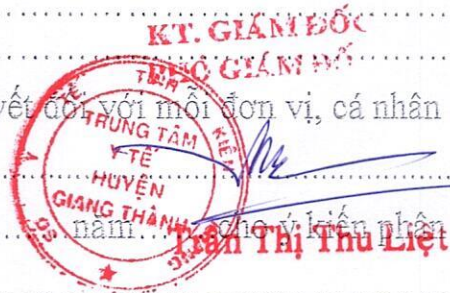 KT. GIÁM ĐỐC
PHÓ GIÁM ĐỐC
yết đối với mỗi đơn vị, cá nhân
TRUNG TÂM
Y TẾ
HUYỆN
GIANG THÀNH
năm cho ý kiến phân
Trần Thị Thu Liệt